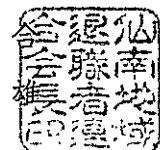 仙南地域
退職者連
合会長印
雄